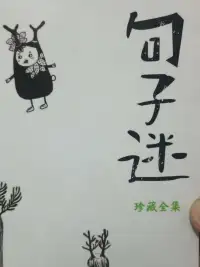 句子迷
珍藏全集